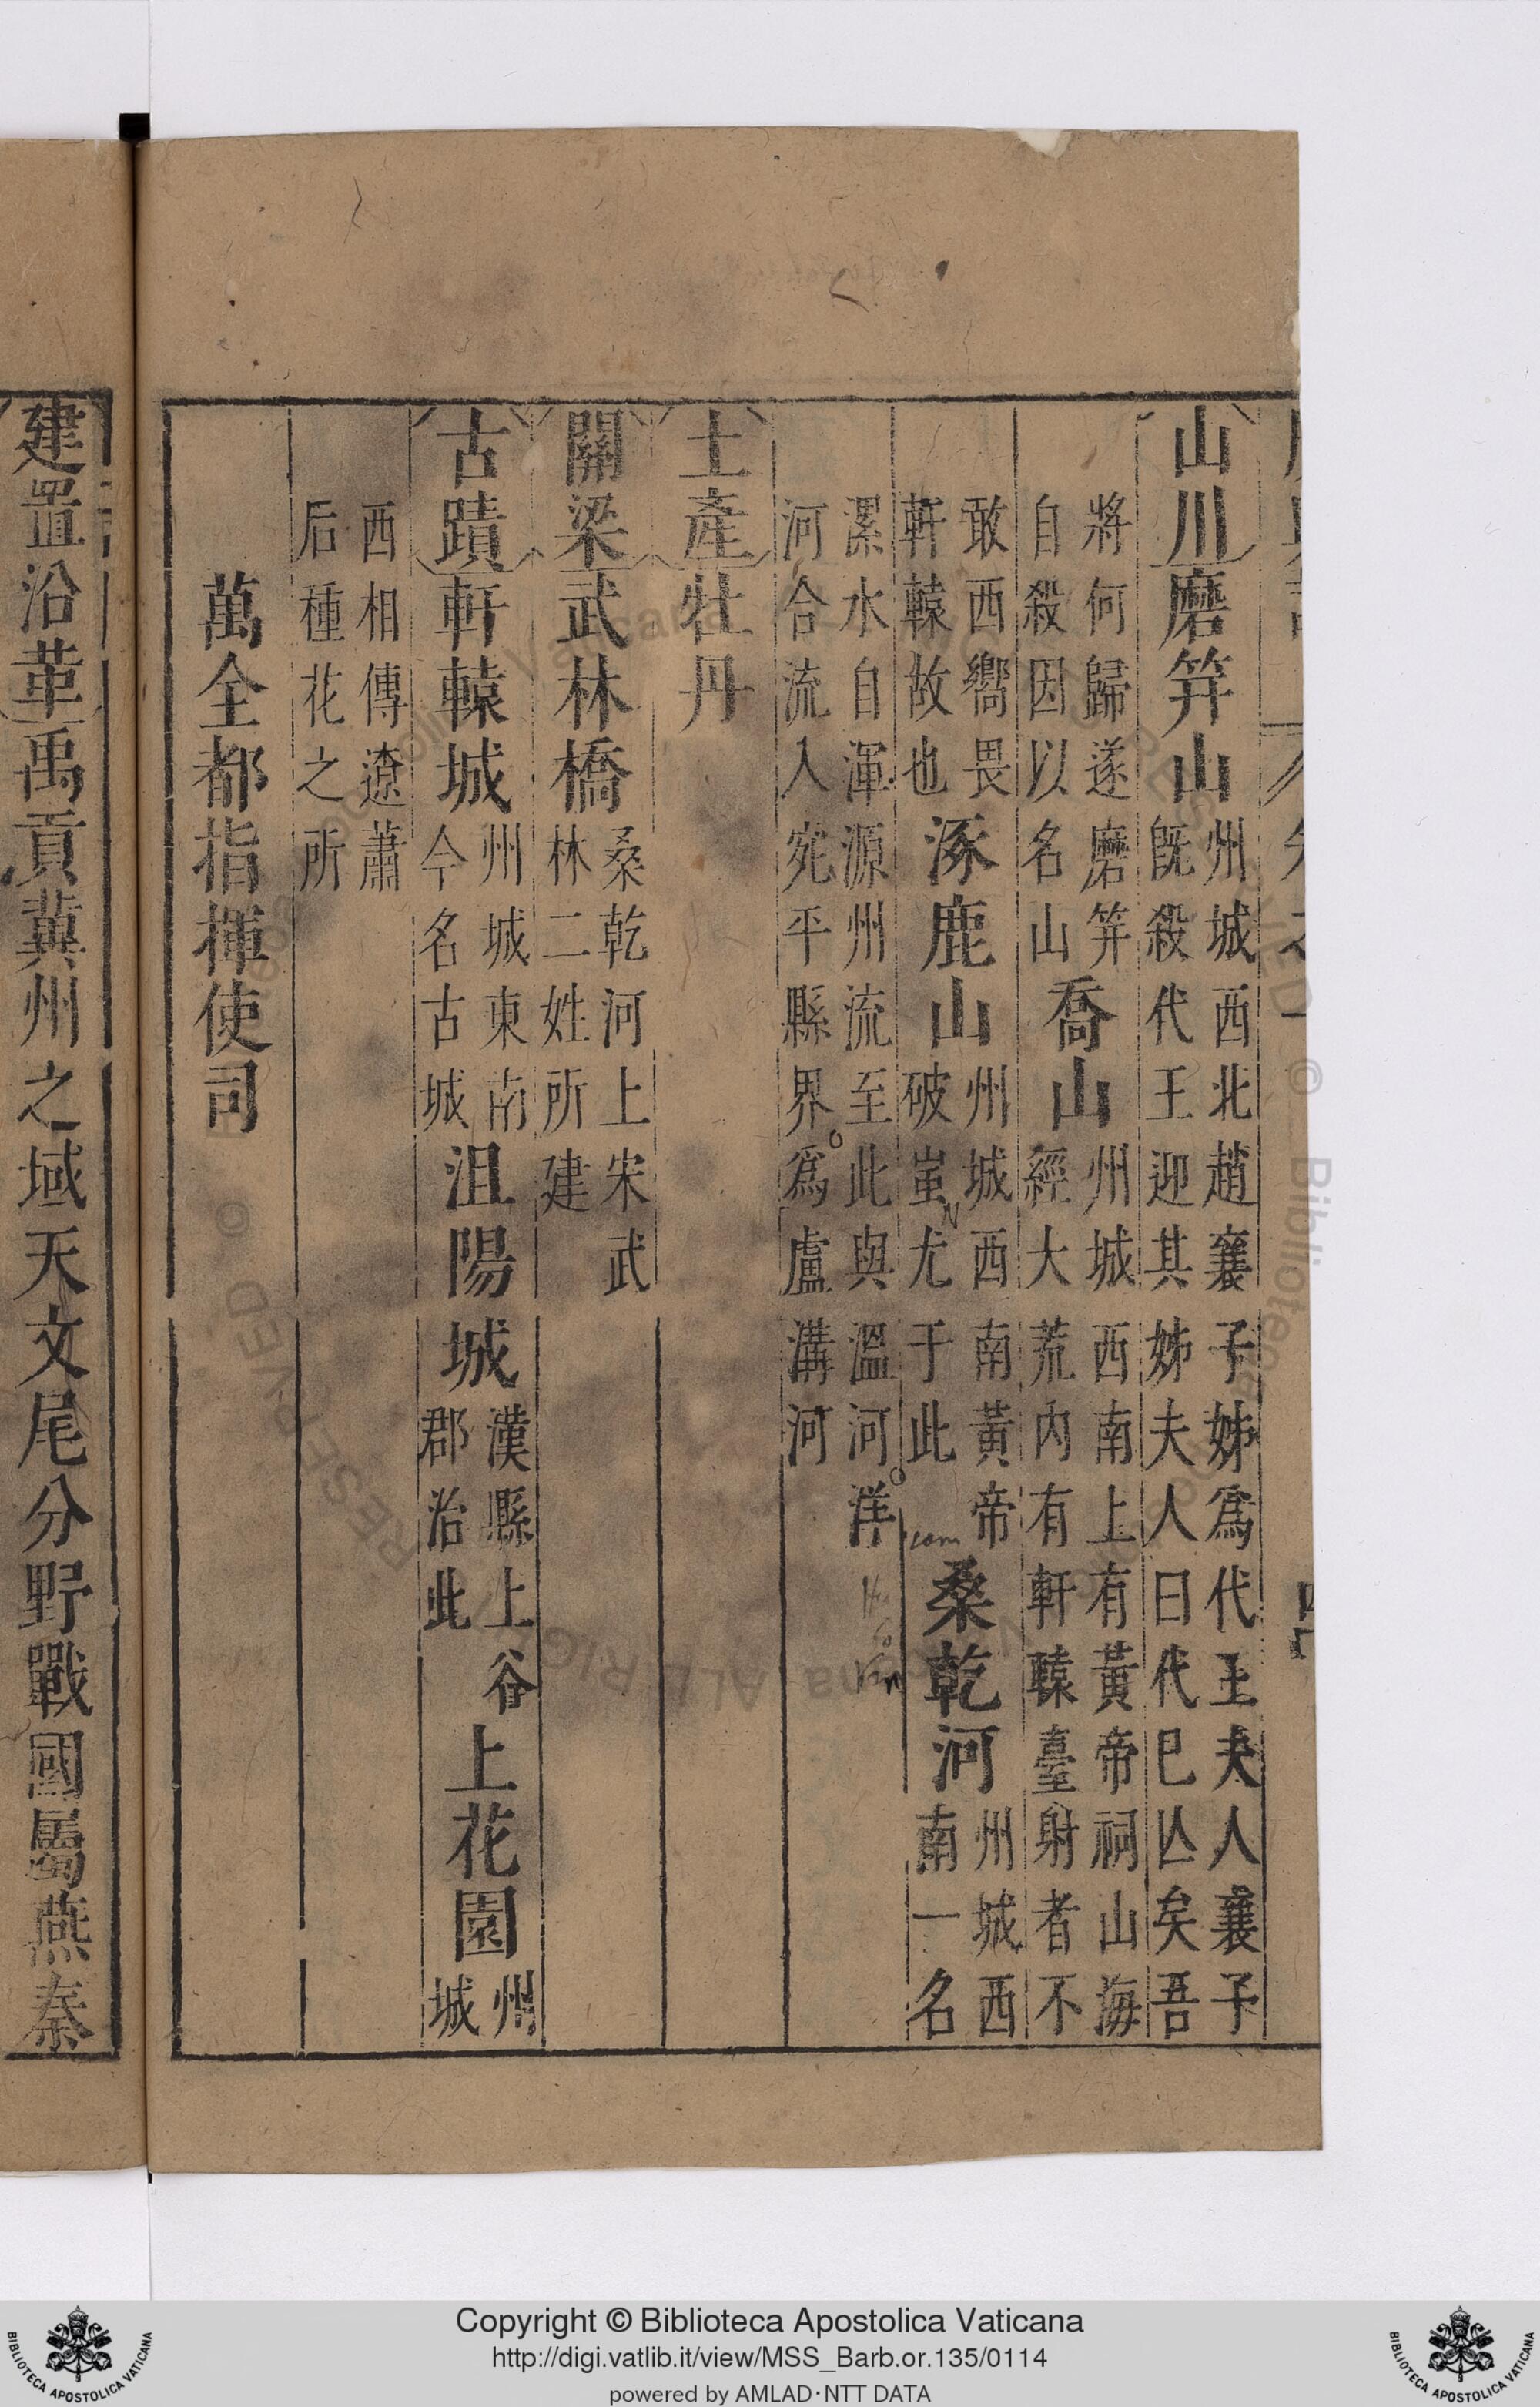 山川磨笄山州城西北趙襄子姊爲代王夫人襄子
既殺代王迎其姊夫人曰代巳亾矣吾
將何歸遂磨笄
自殺因以名山喬山州城西南上有黃帝祠山海
經大荒內有軒轅臺射者不
敢西嚮畏
軒轅故也涿鹿山州城西南黃帝
破蚩尤于此桑乾河州城西
南一名
漯水自渾源州流至此與溫河洋
河合流入宛平縣界爲盧溝河
土產牡丹
關梁武林橋桑乾河上宋武
林二姓所建
古蹟軒轅城州城東南
今名古城沮陽城漢縣上谷
郡治此上花園州
城
西相傳遼蕭
后種花之所
萬全都指揮使司
建置沿革禹貢冀州之域天文尾分野戰國屬燕秦
Copyright © Biblioteca Apostolica Vaticana
http://digi.vatlib.it/view/MSS_Barb.or.135/0114
powered by AMLAD·NTT DATA
BIBLIOTECA APOSTOLICA VATICANA
BIBLIOTECA APOSTOLICA VATICANA